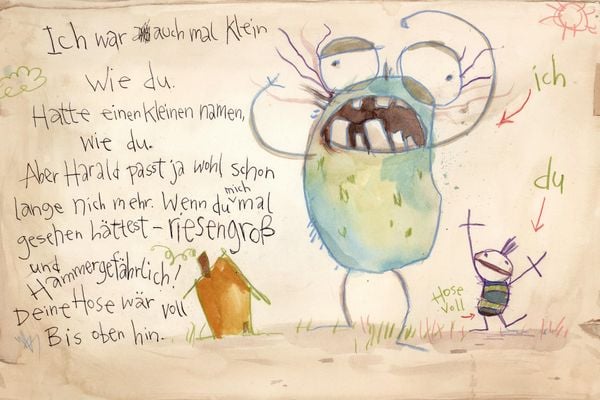 Ich war auch mal Klein
Wie du.
Hatte einen kleinen namen,
wie du.
Aber Harald passt ja wohl schon
lange nich mehr. Wenn du mich mal
gesehen hättest - riesengroß
und
Hammergefährlich!
Deine Hose wär voll
Bis oben hin.
ich
du
Hose
voll